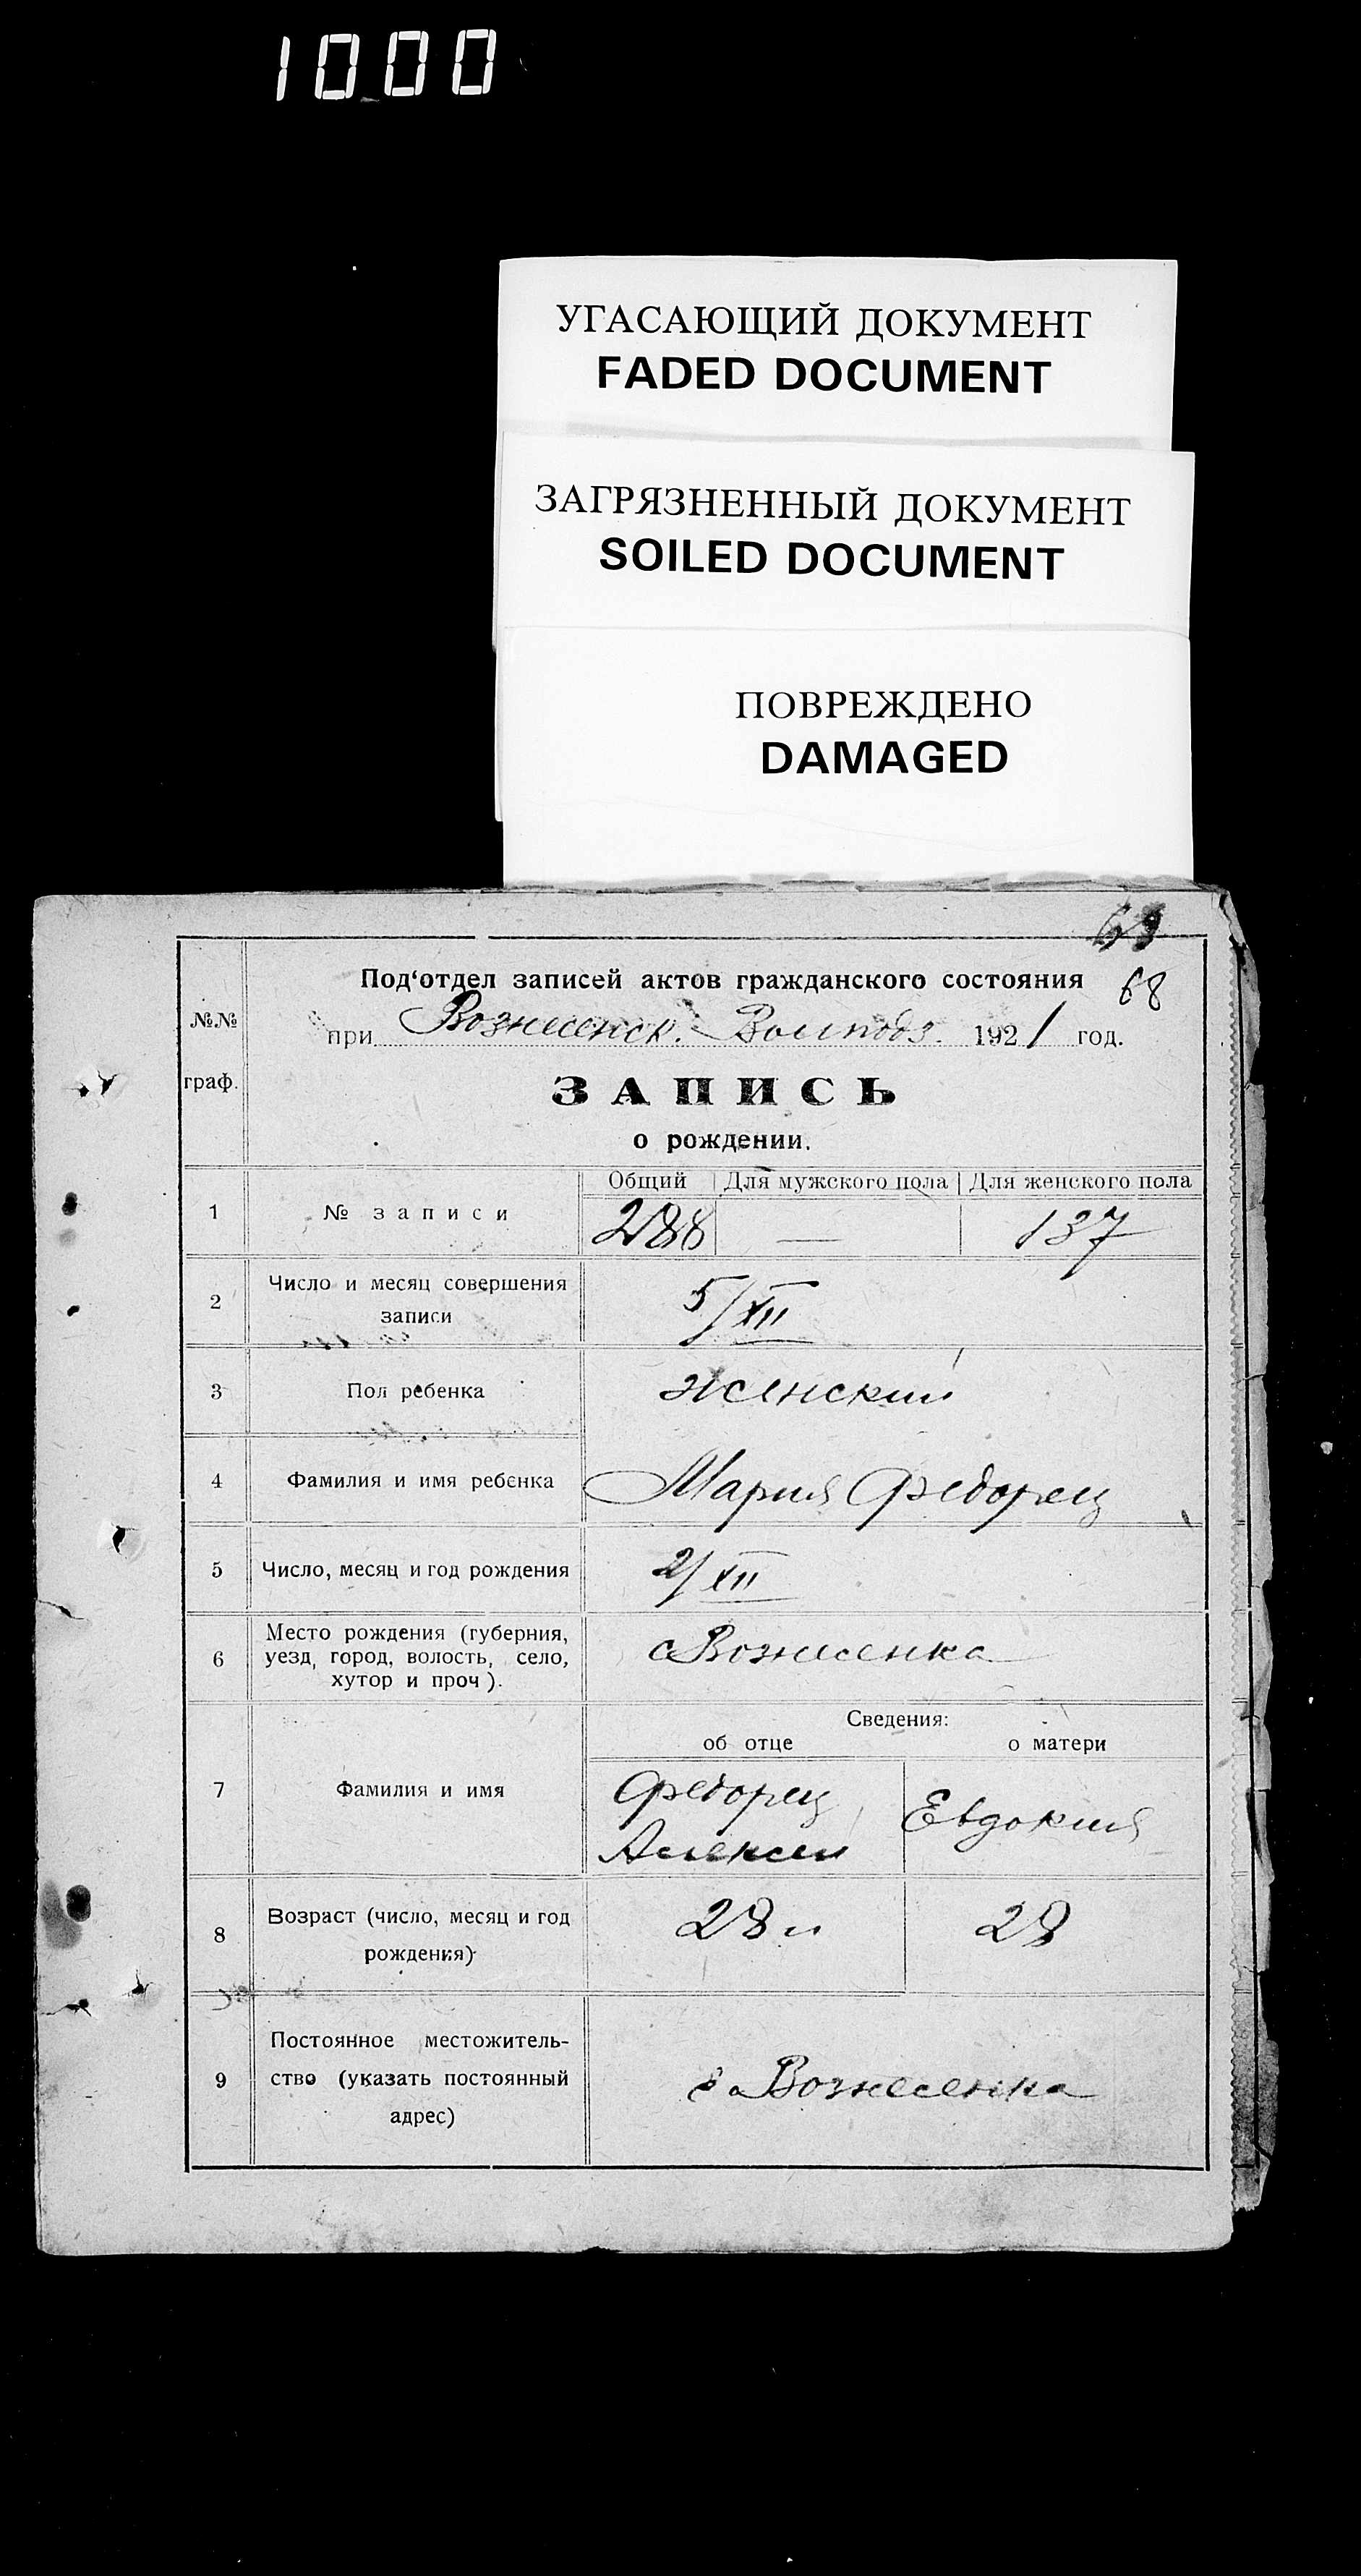 1000
УГАСАЮЩИЙ ДОКУМЕНТ
FADED DOCUMENT
ЗАГРЯЗНЕННЫЙ ДОКУМЕНТ
SOILED DOCUMENT
ПОВРЕЖДЕНО
DAMAGED
68
№№ граф.
Под‘отдел записей актов гражданского состояния
при Вознесенск. 1921 год.
ЗАПИСЬ
о рождении.
Общий Для мужского пола Для женского пола
1 № записи 288 — 137
2 Число и месяц совершения
записи 5/XII
3 Пол ребенка женский
4 Фамилия и имя ребенка Мария Федорец
5 Число, месяц и год рождения 2/XII
6 Место рождения (губерния,
уезд, город, волость, село,
хутор и проч). с Вознесенка
Сведения:
об отце о матери
7 Фамилия и имя Федорец
Алексей Евдокия
8 Возраст (число, месяц и год
рождения) 28 28
9 Постоянное местожитель-
ство (указать постоянный
адрес) Вознесенка